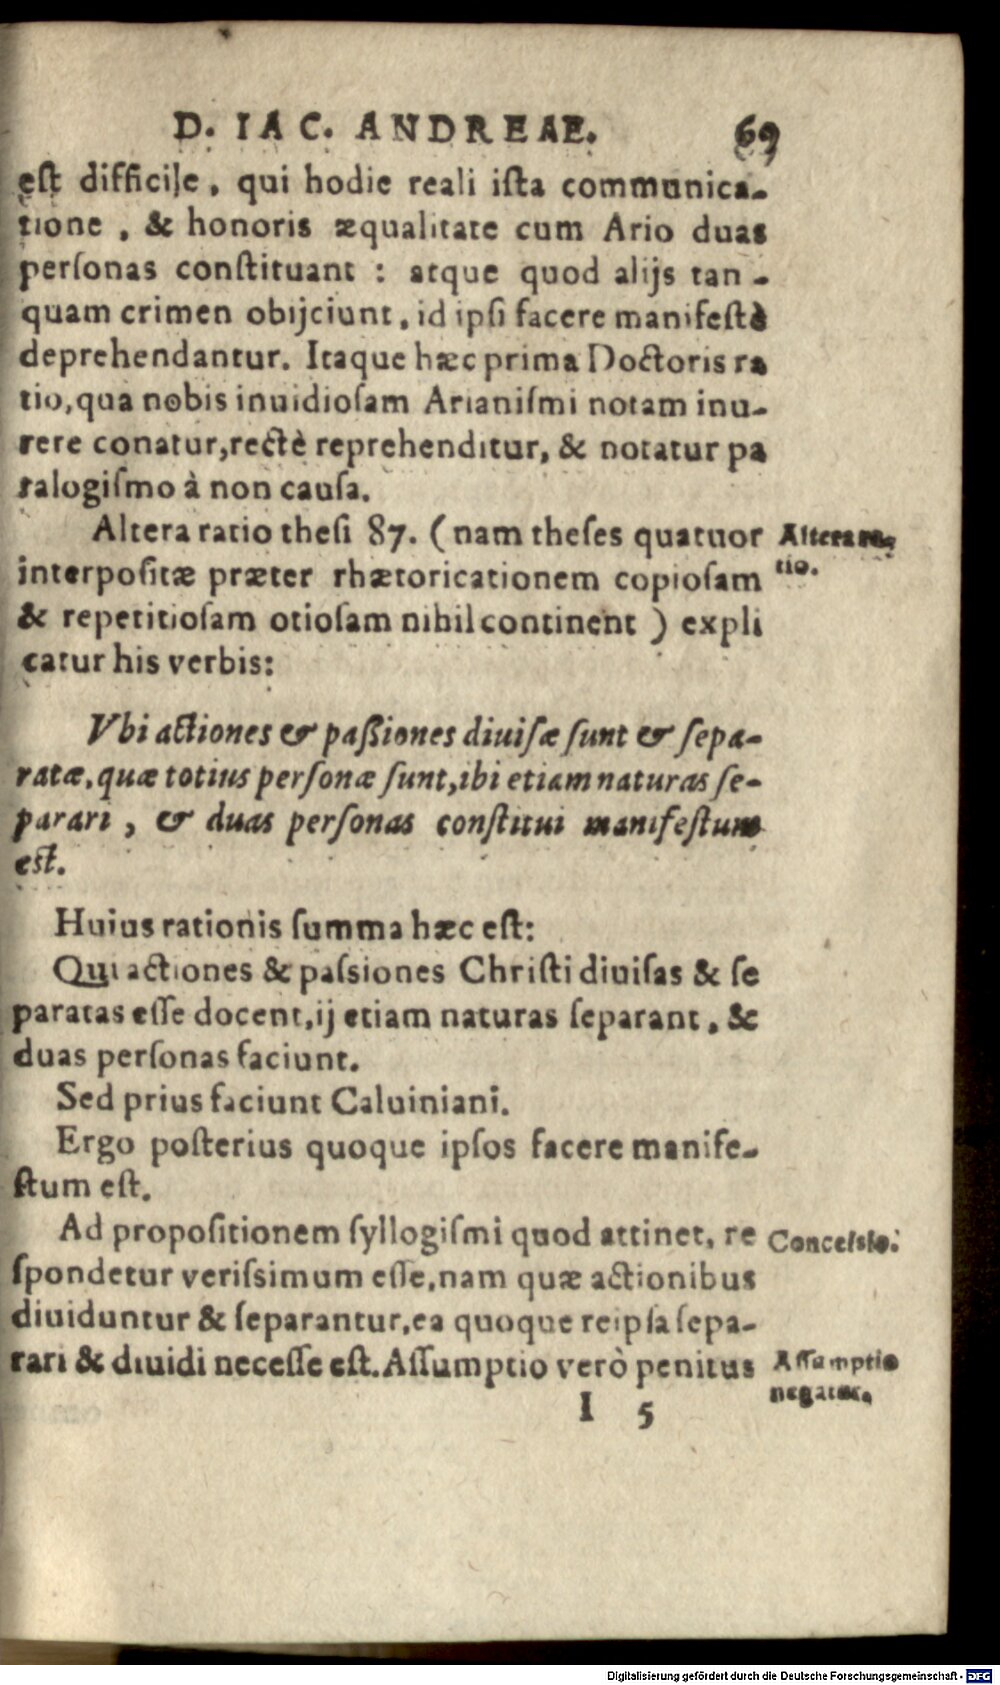 D. IAC. ANDREAE. 69
eſt difficile, qui hodie reali iſta communica-
tione, & honoris æqualitate cum Ario duas
perſonas conſtituant : atque quod alijs tan-
quam crimen obijciunt, id ipſi facere manifeſtè
deprehendantur. Itaque hæc prima Doctoris ra
tio, qua nobis inuidioſam Arianiſmi notam inu-
rere conatur, rectè reprehenditur, & notatur pa
ralogiſmo à non cauſa.
Altera ratio theſi 87. (nam theſes quatuor
Altera ra-
tio.
interpoſitæ præter rhætoricationem copioſam
& repetitioſam otioſam nihil continent ) expli
catur his verbis:
Vbi actiones & paßiones diuiſæ ſunt & ſepa-
ratæ, quæ totius perſonæ ſunt, ibi etiam naturas ſe-
parari, & duas perſonas conſtitui manifeſtum
eſt.
Huius rationis ſumma hæc eſt:
Qui actiones & paſsiones Chriſti diuiſas & ſe
paratas eſſe docent, ij etiam naturas ſeparant, &
duas perſonas faciunt.
Sed prius faciunt Caluiniani.
Ergo poſterius quoque ipſos facere manife-
ſtum eſt.
Ad propoſitionem ſyllogiſmi quod attinet, re
Conceſsio.
ſpondetur veriſsimum eſſe, nam quæ actionibus
diuiduntur & ſeparantur, ea quoque reipſa ſepa-
rari & diuidi neceſſe eſt. Aſſumptio verò penitus
Aſſumptio
negatur.
I 5
Digitalisierung gefördert durch die Deutsche Forschungsgemeinschaft - DFG